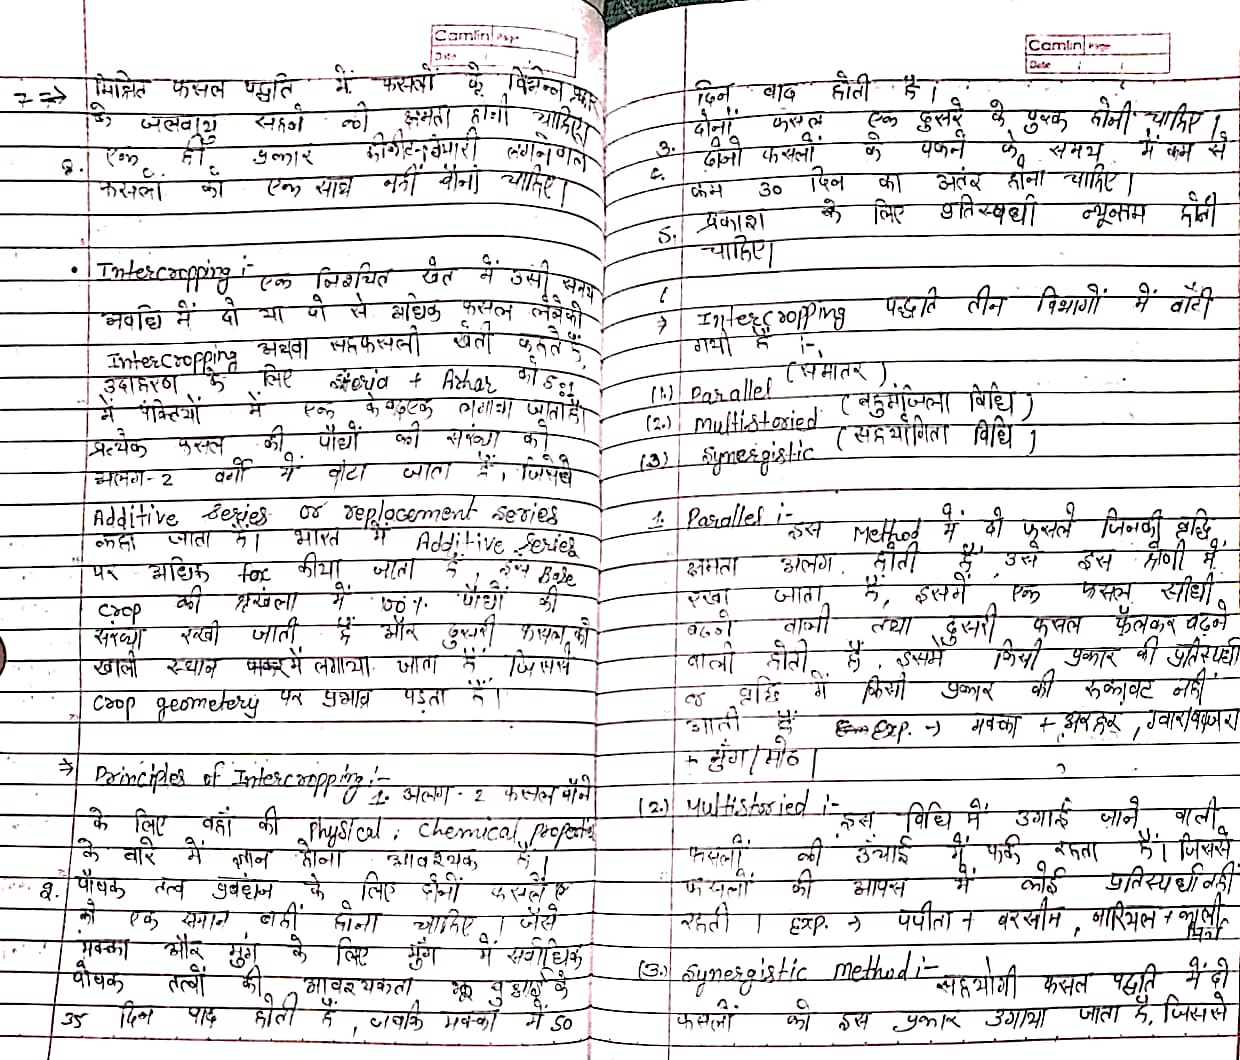 Camlin Page
Date
7 ⇒ मिश्रित फसल पद्धति में फसलों के विभिन्न प्रकार
के जलवायु सहने की क्षमता होनी चाहिए।
8. एक ही प्रकार कीट-बिमारी लगने वाले
फसलों को एक साथ नहीं बोना चाहिए।
• Intercropping :- एक निश्चित खेत में उसी समय
अवधि में दो या दो से अधिक फसल लेने को
Intercropping अथवा सहफसली खेती कहते हैं,
उदाहरण के लिए + Arhar को 5:1
में पंक्तियों में एक के बाद एक लगाया जाता है।
प्रत्येक फसल की पौधों की संख्या को
अलग-2 वर्गो में बांटा जाता है, जिसे
Additive Series or replacement series
कहा जाता है। भारत में Additive Series
पर अधिक for कीया जाता है, इस Base
crop की श्रृखंला में 100% पौधों की
संख्या रखी जाती है और दुसरी फसल को
खाली स्थान में लगाया जाता है जिससे
crop geometery पर प्रभाव पड़ता है।
⇒ Principles of Intercropping :-
1. अलग-2 फसल बोने
के लिए वहाँ की Physical, Chemical properties
के बारे में ज्ञान होना आवश्यक है।
2. पोषक तत्व प्रबंधन के लिए दोनों फसलें
को एक समान नहीं होना चाहिए। जैसे
मक्का और मुंग के लिए मुंग में सर्वाधिक
पोषक तत्वों की आवश्यकता बुआई के
35 दिन बाद होती है, जबकि मक्का में 50
Camlin Page
Date
दिन बाद होती है।
3. दोनों फसल एक दुसरे के पुरक होनी चाहिए।
4. दोनो फसलों के पकने के समय में कम से
कम 30 दिन का अतंर होना चाहिए।
5. प्रकाश के लिए प्रतिस्पर्धा न्यूनतम होनी
चाहिए।
⇒ Intercropping पद्धति तीन विभागों में बाँटी
गयी है :-
(1.) Parallel (समांतर)
(2.) Multistoried (बहुमंजिला विधि)
(3.) Synergistic (सहयोगिता विधि)
1. Parallel :-
इस Method में दो फसले जिनकी वृद्धि
क्षमता अलग होती है, उसे इस श्रेणी में
रखा जाता है, इसमें एक फसल सीधी
बढने वाली तथा दुसरी फसल फैलकर बढ़ने
वाली होती है, इसमें किसी प्रकार की प्रतिस्पर्धा
व वृद्धि में किसी प्रकार की रुकावट नहीं
आती है Exp. → मक्का + अरहर, ग्वार/बाजरा
+ मुंग/मोठ।
(2.) Multistoried :-
इस विधि में उगाई जाने वाली
फसलों की उंचाई में फर्क रहता है। जिससे
फसलों की आपस में कोई प्रतिस्पर्धा नहीं
रहती। Exp. → पपीता + बरसीम, नारियल + काली
मिर्च
(3.) Synergistic Method :-
सहयोगी फसल पद्धति में दो
फसलों को इस प्रकार उगाया जाता है, जिससे